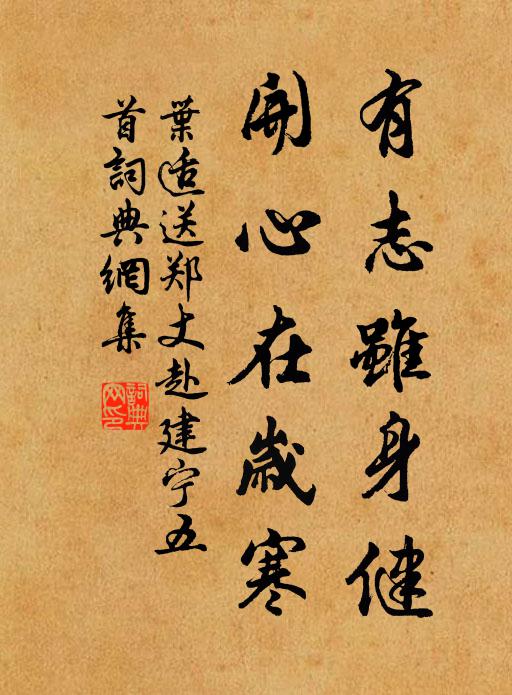 有志雖身健
開心在歲寒
葉适送郑丈赴建宁五
首詞典網集
詞典
网印